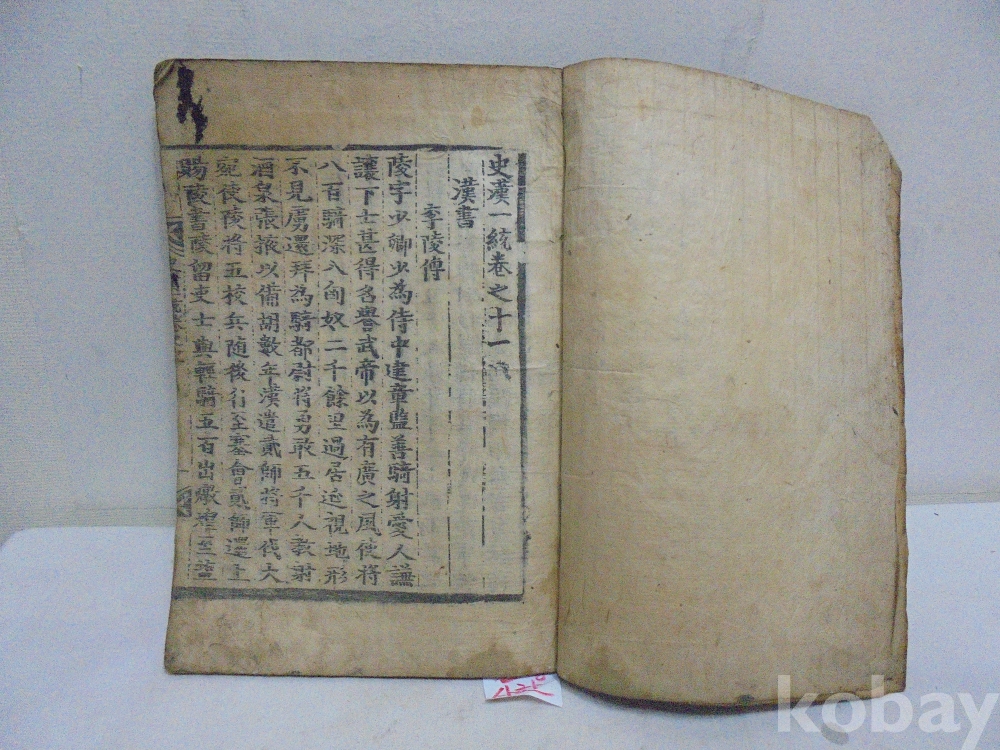 史漢一統卷之十一
漢書
李陵傳
陵字少卿少為侍中建章監善騎射愛人謙
讓下士甚得名譽武帝以為有廣之風使將
八百騎深入匈奴二千餘里過居延視地形
不見虜還拜為騎都尉將勇敢五千人教射
酒泉張掖以備胡數年漢遣貳師將軍伐大
宛使陵將五校兵隨後行至塞會貳師還上
賜陵書陵留吏士與輕騎五百出燉煌至鹽
kobay